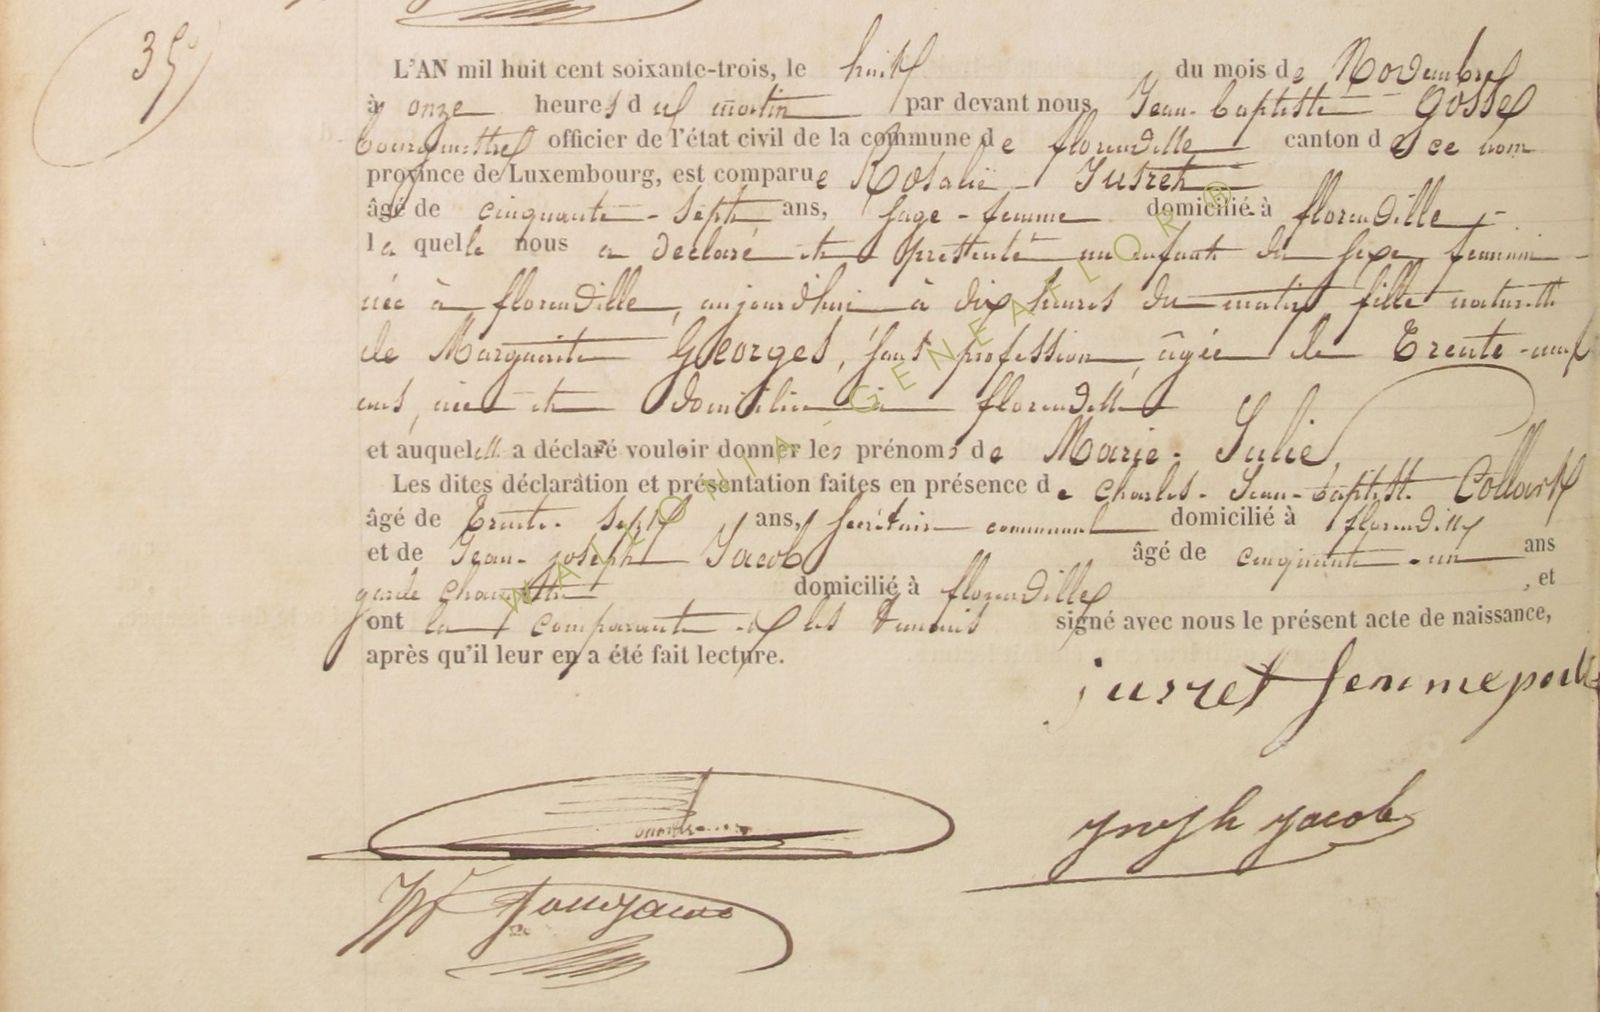 35
L'AN mil huit cent soixante-trois, le huit du mois de Novembre
à onze heures du matin par devant nous Jean-baptiste Gosse
bourgmestre officier de l'état civil de la commune de florenville canton de ce nom
province de Luxembourg, est comparue Rosalie Jusret
âgé de cinquante-sept ans, sage-femme domicilié à florenville,
laquelle nous a déclaré et présenté un enfant du sexe féminin
née à florenville, aujourd'hui à dix heures du matin fille naturelle
de Marguerite Georges, sans profession, âgée de Trente-neuf
ans, née et domiciliée à florenville
et auquelle a déclaré vouloir donner les prénoms de Marie-Julie,
Les dites déclaration et présentation faites en présence de Charles-Jean-baptiste Collart
âgé de Trente-sept ans, secrétaire communal domicilié à florenville
et de Jean-joseph Jacob âgé de cinquante-un ans
garde champêtre domicilié à florenville, et
ont la comparante et les témoins signé avec nous le présent acte de naissance,
après qu'il leur en a été fait lecture.
jusret femme
joseph jacob
WALLONIA - GENEALOR ®